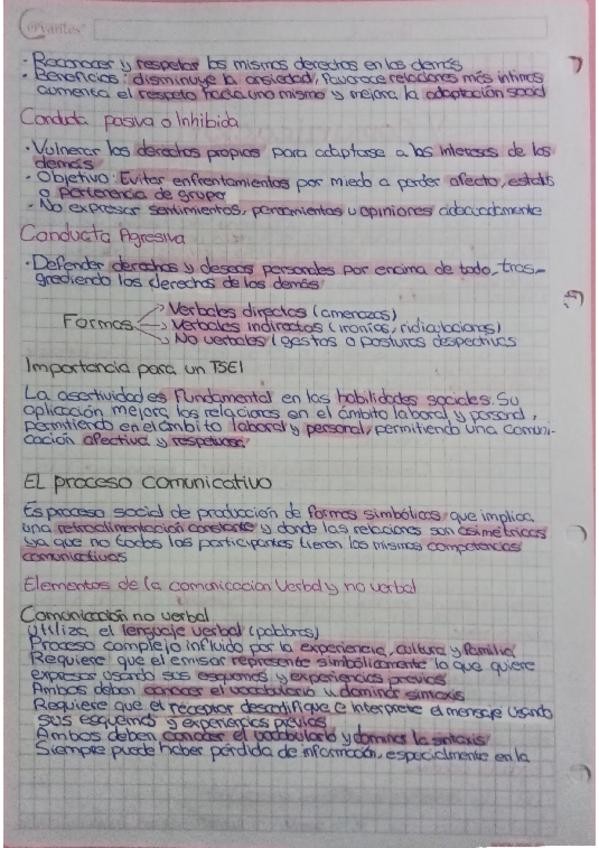 Cervantes
· Reconocer y respetar los mismos derechos en los demás
· Beneficios: disminuye la ansiedad, favorece relaciones más intimas
aumenta el respeto hacia uno mismo y mejora la adaptación social
Conducta pasiva o Inhibida
· Vulnerar los derechos propios para adaptarse a los intereses de los
demás
· Objetivo: Evitar enfrentamientos por miedo a perder afecto, estatus
o pertenencia de grupo
· No expresar sentimientos, pensamientos u opiniones adecuadamente
Conducta Agresiva
· Defender derechos y deseos personales por encima de todo, tras-
grediendo los derechos de los demás
Formas
Verbales directos (amenazas)
Verbales indirectos (ironías, ridiculaciones)
No verbales (gestos o posturas despectivas
Importancia para un TSEI
La asertividad es fundamental en las habilidades sociales. Su
aplicación mejora las relaciones en el ámbito laboral y personal,
permitiendo en el ámbito laboral y personal, permitiendo una comuni-
cación afectiva y respetuosa.
EL proceso comunicativo
Es proceso social de producción de formas simbólicas que implica
una retroalimentación constante y donde las relaciones son asimétricas
ya que no todos los participantes tienen las mismas competencias
comunicativas
Elementos de la comunicación Verbal y no verbal
Comunicación no verbal
Utiliza el lenguaje verbal (palabras)
Proceso complejo influido por la experiencia, cultura y familia
Requiere que el emisor represente simbólicamente lo que quiere
expresar usando sus esquemas y experiencias previas
Ambos deben conocer el vocabulario y dominar sintaxis
Requiere que el receptor descodifique e interprete el mensaje usando
sus esquemas y experiencias previas
Ambos deben conocer el vocabulario y dominar la sintaxis
Siempre puede haber pérdida de información, especialmente en la